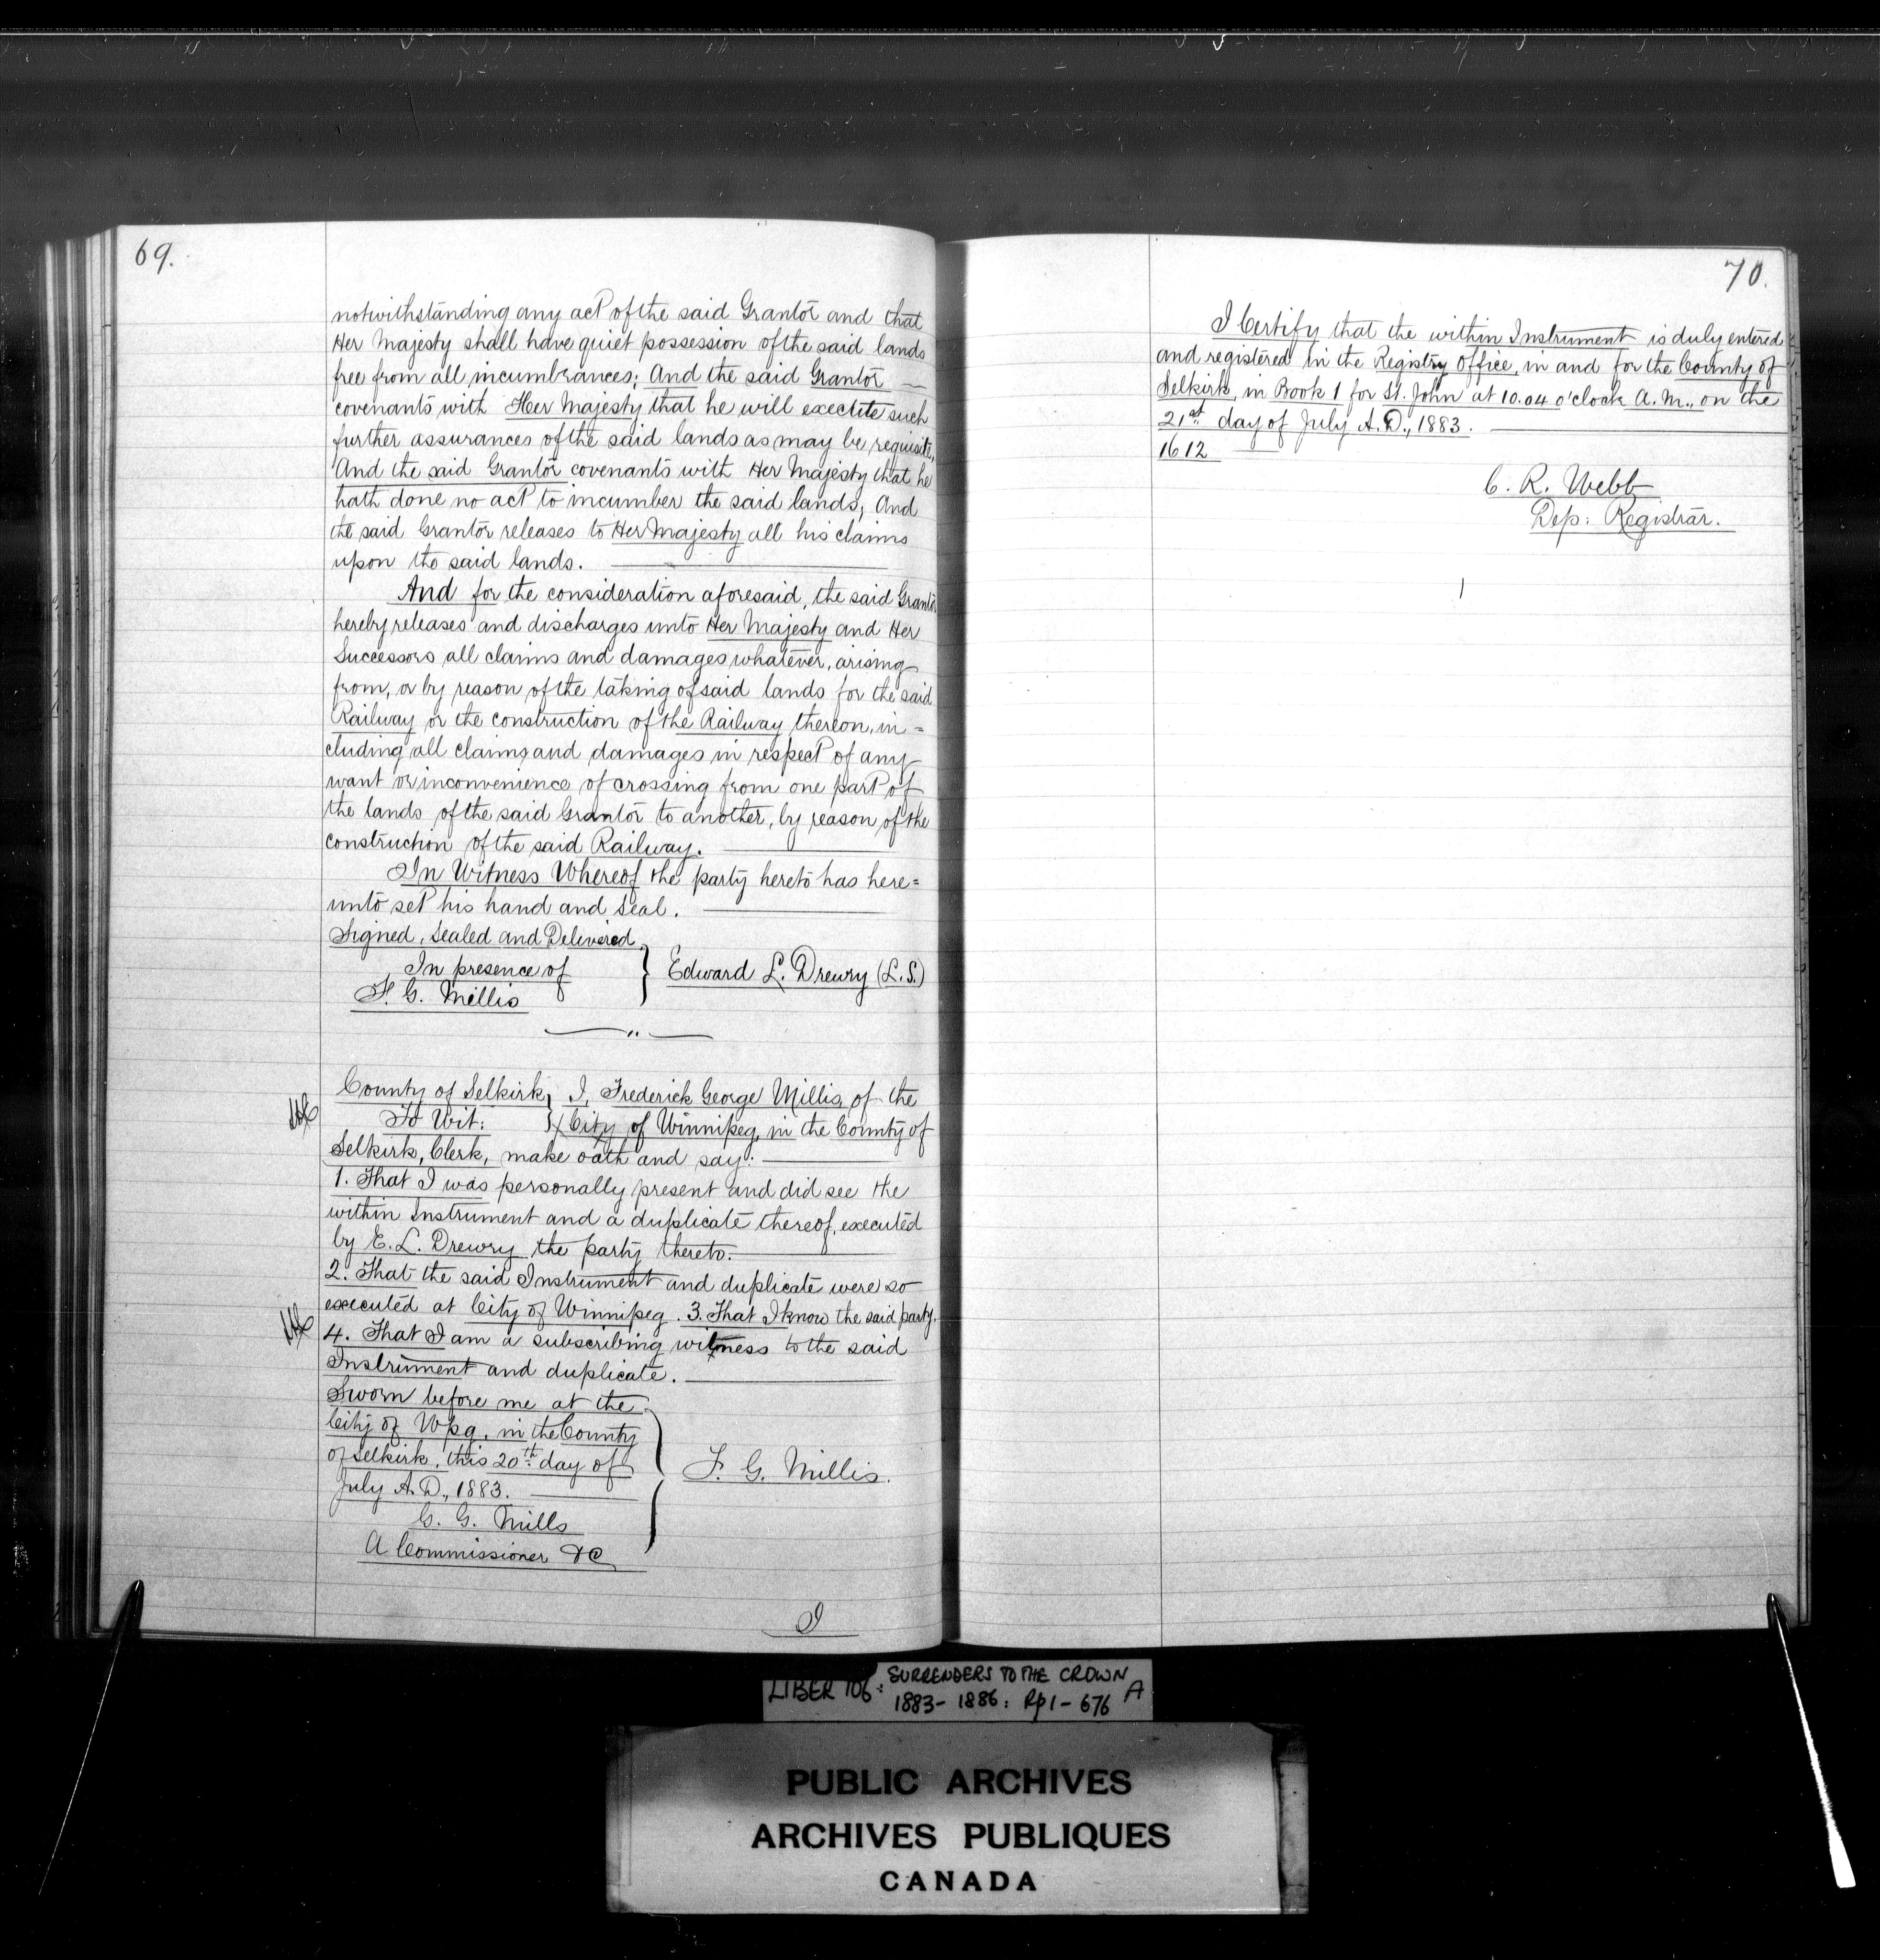 69.
notwithstanding any act of the said Grantor and that
Her Majesty shall have quiet possession of the said lands
free from all incumbrances; And the said Grantor —
covenants with Her Majesty that he will execute such
further assurances of the said lands as may be requisite,
And the said Grantor covenants with Her Majesty that he
hath done no act to incumber the said lands; And
the said Grantor releases to Her Majesty all his claims
upon the said lands. —
And for the consideration aforesaid, the said Grantor
hereby releases and discharges unto Her Majesty and Her
Successors all claims and damages whatever, arising
from, or by reason of the taking of said lands for the said
Railway or the construction of the Railway thereon, in=
cluding all claims and damages in respect of any
want or inconvenience of crossing from one part of
the lands of the said Grantor to another, by reason of the
construction of the said Railway. —
In Witness Whereof the party hereto has here=
unto set his hand and seal. —
Signed, Sealed and Delivered
In presence of } Edward L. Drewry (L.S.)
F. G. Millis
County of Selkirk, } I, Frederick George Millis, of the
To Wit: } City of Winnipeg, in the County of
Selkirk, Clerk, make oath and say: —
1. That I was personally present and did see the
within Instrument and a duplicate thereof, executed
by E. L. Drewry the party thereto. —
2. That the said Instrument and duplicate were so
executed at City of Winnipeg. 3. That I know the said party.
4. That I am a subscribing witness to the said
Instrument and duplicate. —
Sworn before me at the
City of Wpg, in the County
of Selkirk, this 20th day of } F. G. Millis.
July A.D., 1883. —
G. G. Mills
A Commissioner &c
I
70.
I Certify that the within Instrument is duly entered
and registered in the Registry Office, in and for the County of
Selkirk, in Book 1 for St. John at 10.04 o'clock A.M., on the
21st day of July A.D., 1883. —
1612 —
C. R. Webb
Dep: Registrar.
LIBER 106: SURRENDERS TO THE CROWN A
1883-1886: Pp 1-676
PUBLIC ARCHIVES
ARCHIVES PUBLIQUES
CANADA